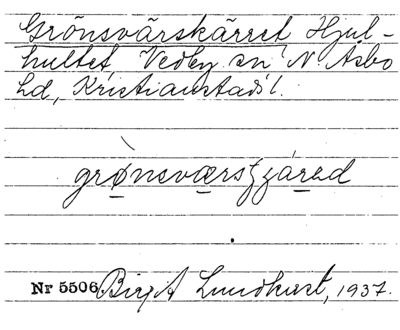 Grönsvärskärret Hjul-
hultet, Vedby sn N. Åsbo
hd, Kristianstads l.
grø̀nsværsʈʂárəd
Nr 5506 Birgit Lundkvist, 1937.